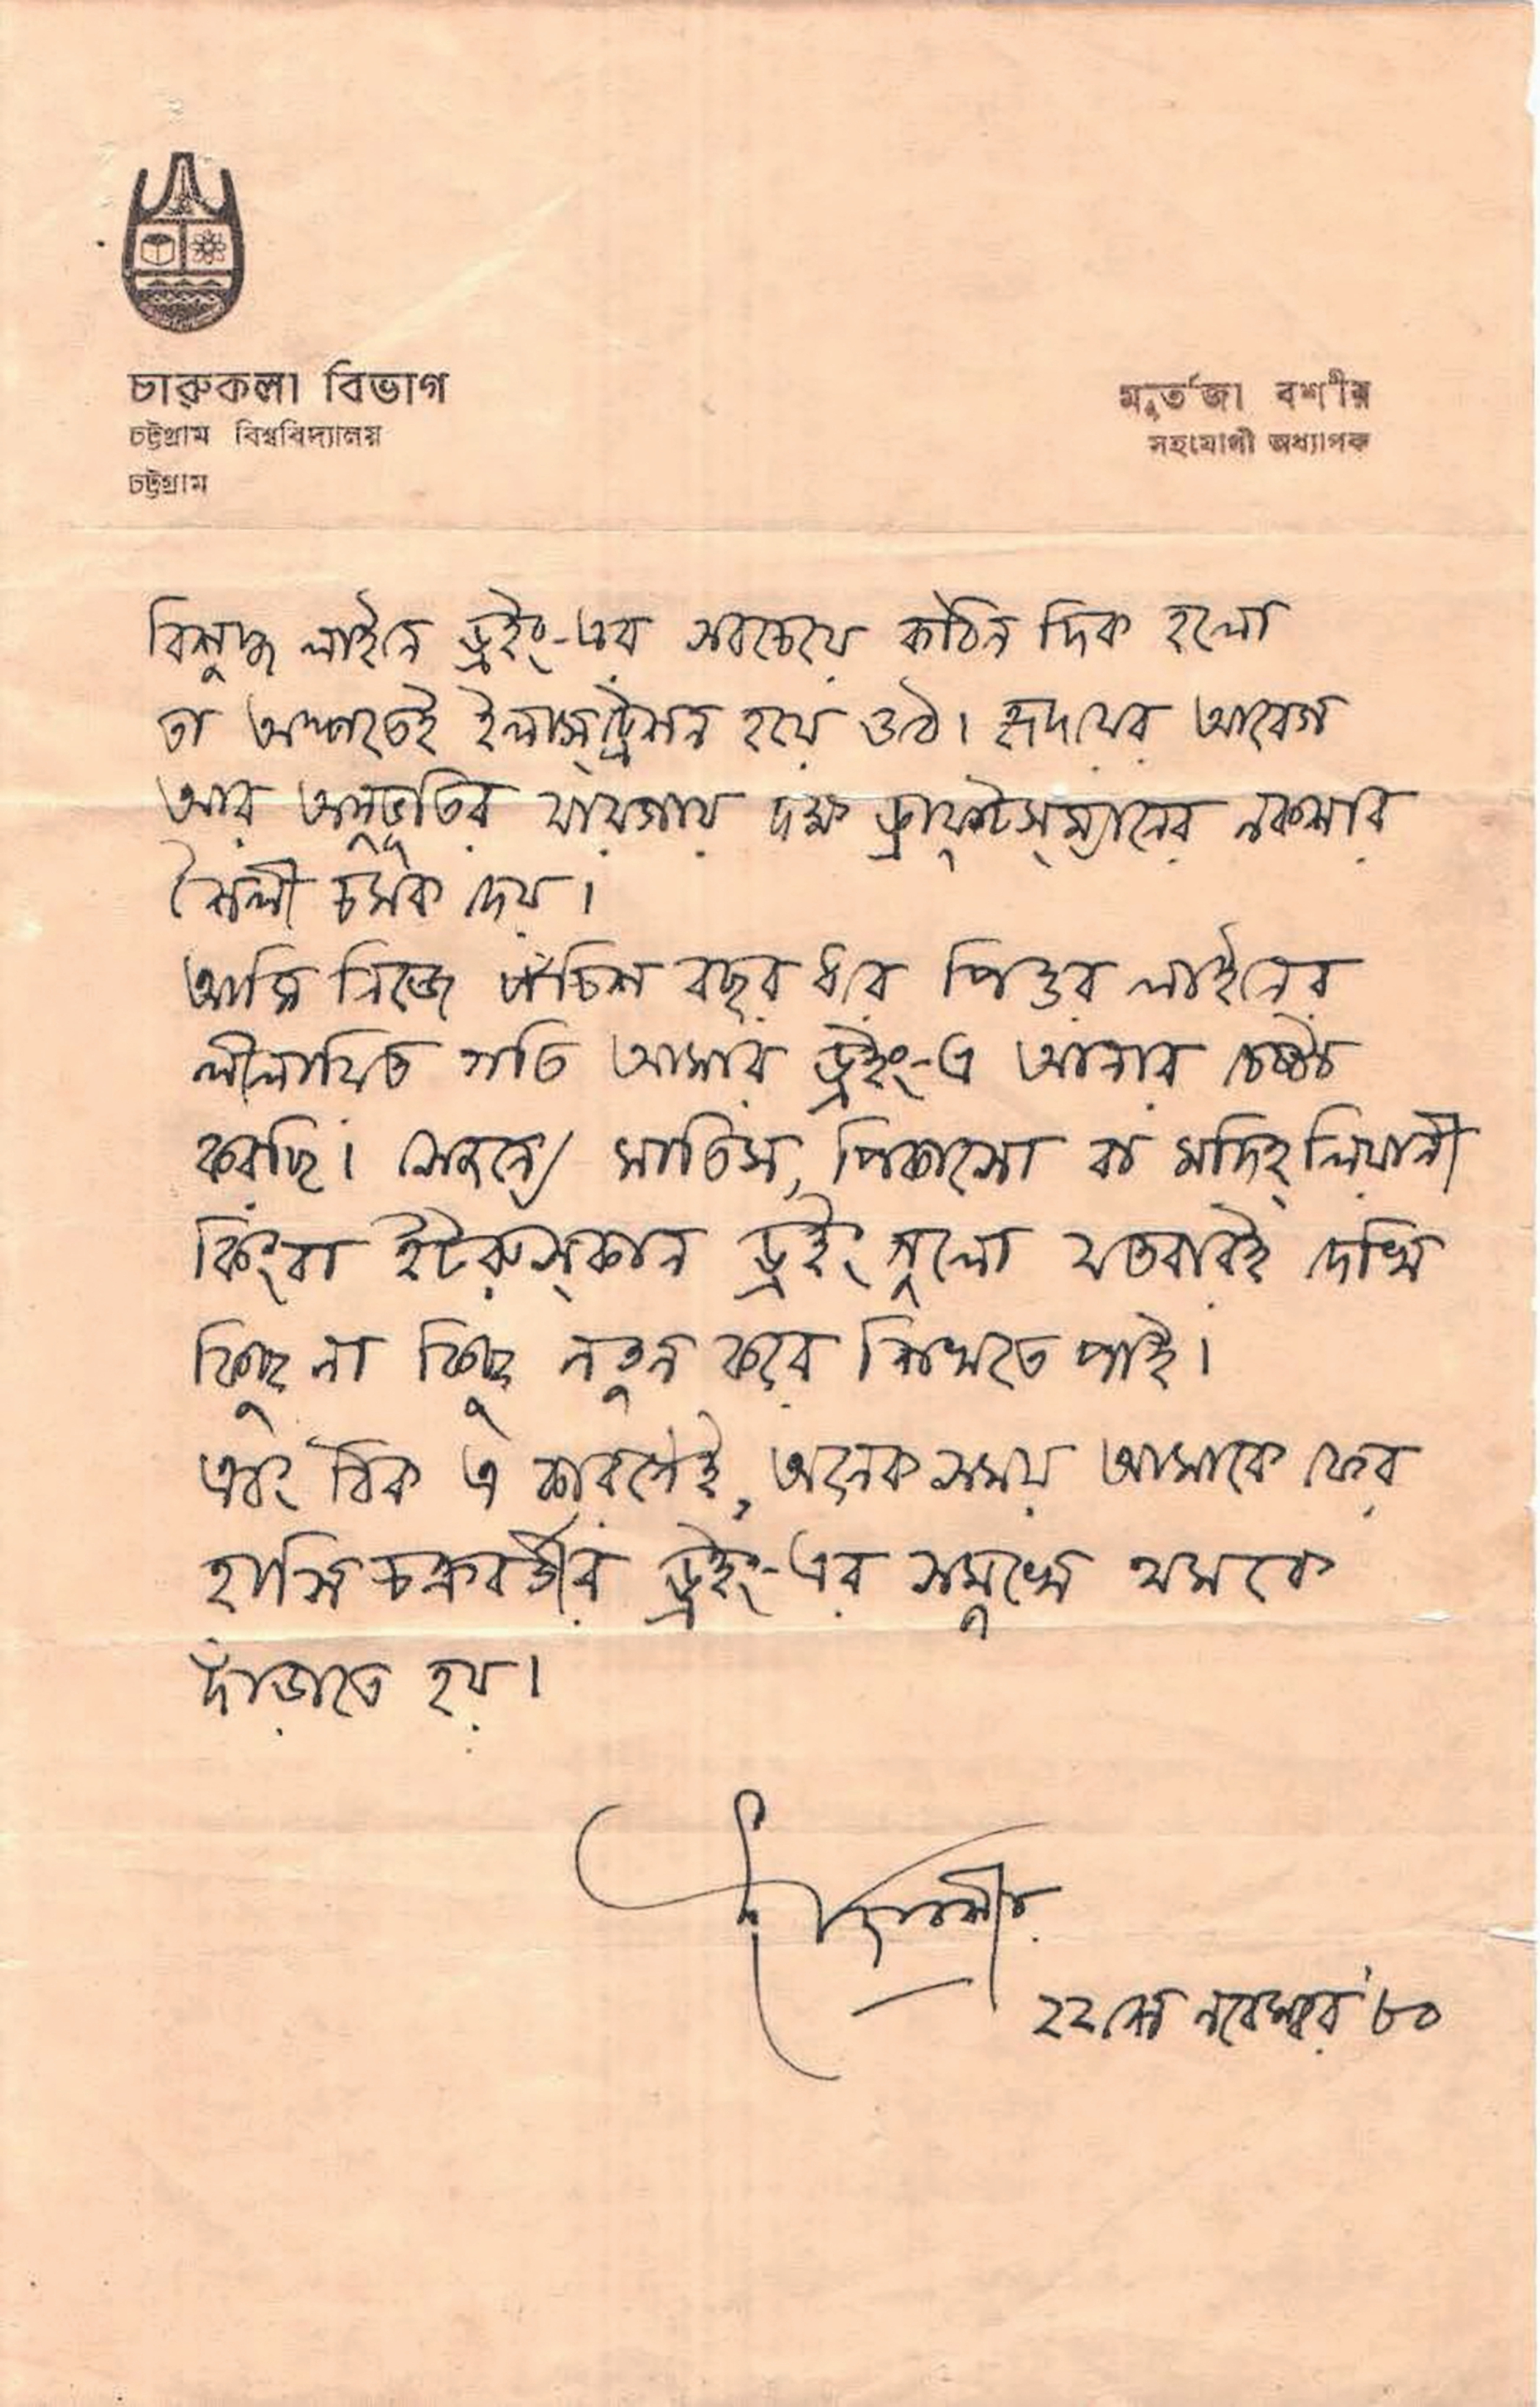 চারুকলা বিভাগ
চট্টগ্রাম বিশ্ববিদ্যালয়
চট্টগ্রাম
মুর্তজা বশীর
সহযোগী অধ্যাপক
বিশুদ্ধ লাইনে ড্রইং-এর সবচেয়ে কঠিন দিক হলো
তা অজান্তেই ইলাস্ট্রেসন হয়ে ওঠে। হৃদয়ের আবেগ
আর অনুভূতির যায়গায় দক্ষ ড্রাফ্‌টস্‌ম্যানের নকসার
শৈলী চমক দেয়।
আমি নিজে পঁচিশ বছর ধরে পিওর লাইনের
লীলায়িত গতি আমার ড্রইং-এ আনার চেষ্টা
করছি। সেজন্যে মাতিস, পিকাসো বা মদিগ্লিয়ানী
কিংবা ইট্রুস্‌কান ড্রইং গুলো যতবারই দেখি
কিছু না কিছু নতুন করে শিখতে পাই।
এবং ঠিক এ কারণেই, অনেক সময় আমাকে ফের
হাসি চক্রবর্তীর ড্রইং-এর সম্মুখে থমকে
দাঁড়াতে হয়।
২২শে নবেম্বর '৮০